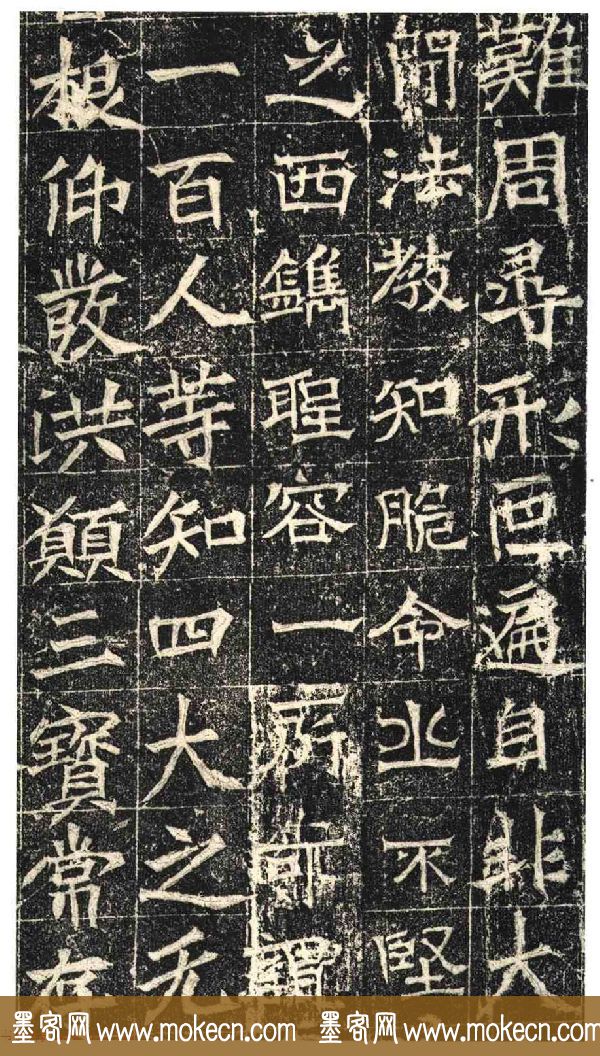 難周尋形叵遍自非大
聞法教知脆命不堅
之西鐫聖容一所可謂
一百人等知四大之无
根仰發洪願三寶常
墨客网 www.mokecn.com 墨客网 www.mokecn.com